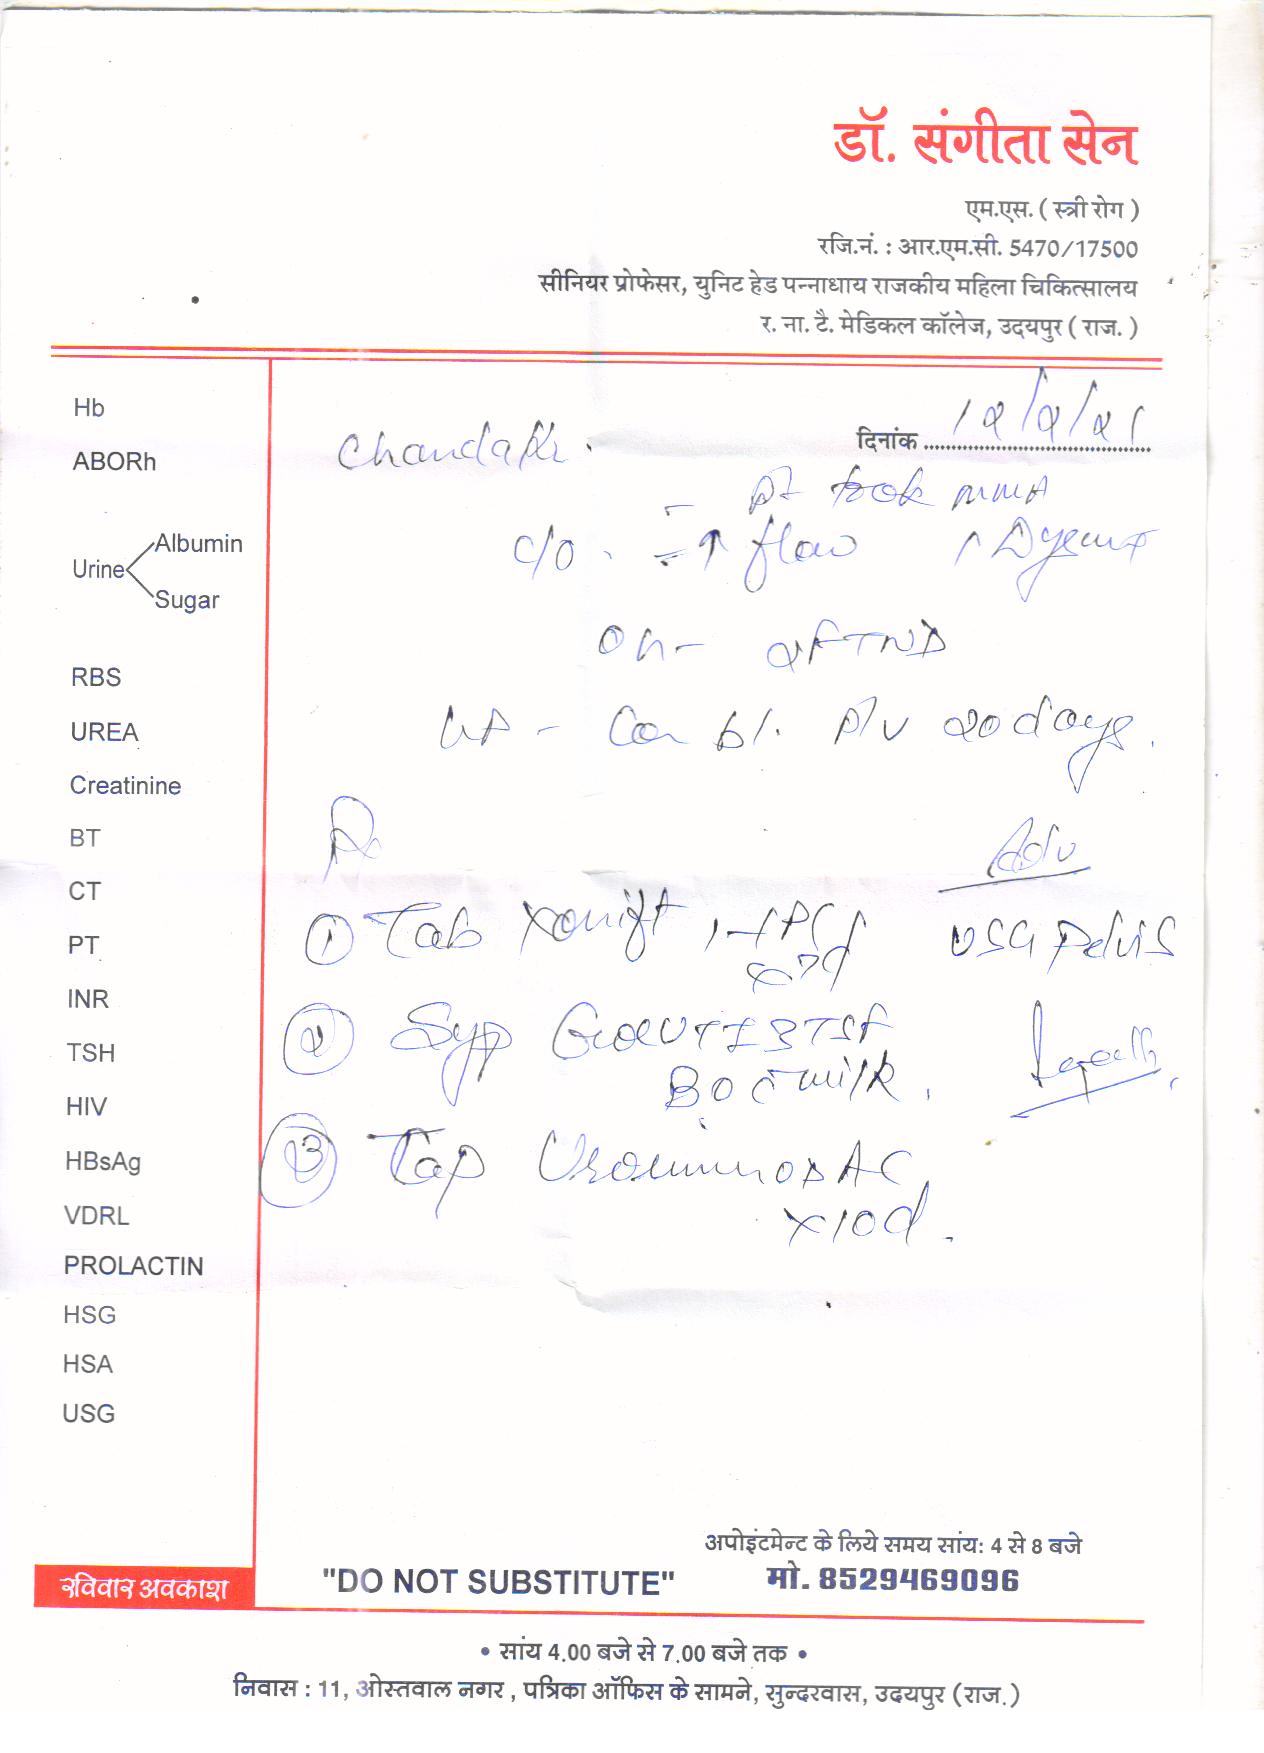 डॉ. संगीता सेन
एम.एस. ( स्त्री रोग )
रजि.नं. : आर.एम.सी. 5470/17500
सीनियर प्रोफेसर, युनिट हेड पन्नाधाय राजकीय महिला चिकित्सालय
र. ना. टै. मेडिकल कॉलेज, उदयपुर ( राज. )
Hb
ABORh
Urine
Albumin
Sugar
RBS
UREA
Creatinine
BT
CT
PT
INR
TSH
HIV
HBsAg
VDRL
PROLACTIN
HSG
HSA
USG
दिनांक 12/2/21
- Pt took
C/O. - ↑ flow
OH - 2FTND
P/V 20 days.
Rx
Adv
① Tab
x 7d
USG Pelvis
② Syp
BD c milk.
③
x 10d.
अपोइंटमेन्ट के लिये समय सांय: 4 से 8 बजे
मो. 8529469096
"DO NOT SUBSTITUTE"
रविवार अवकाश
• सांय 4.00 बजे से 7.00 बजे तक •
निवास : 11, ओस्तवाल नगर , पत्रिका ऑफिस के सामने, सुन्दरवास, उदयपुर (राज.)